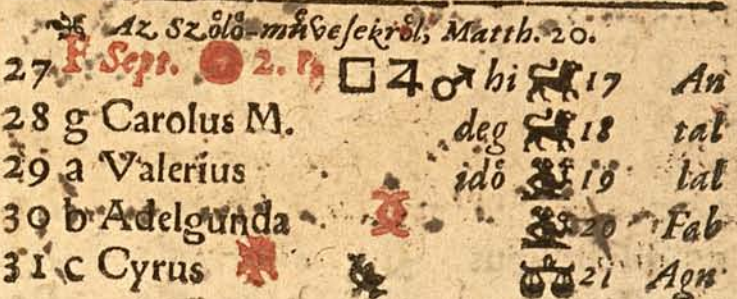 Az Szo̊lo̊-mu̇̊veſekro̊l, Matth. 20.
27 F Sept. 2. ♄ □ ♃ ♂ hi ♌ 17 An
28 g Carolus M. deg ♌ 18 tal
29 a Valerius ido̊ ♍ 19 lal
30 b Adelgunda ♍ 20 Fab
31 c Cyrus ♎ 21 Agn